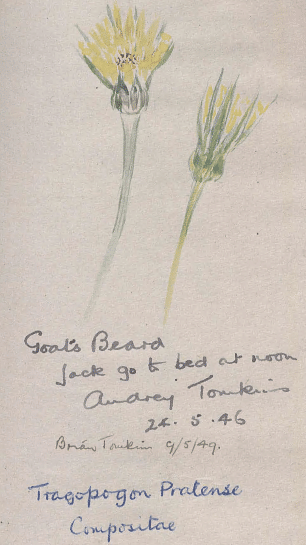 Goat's Beard
Jack go to bed at noon
Audrey Tomkins
24. 5. 46
Brian Tomkin 9/5/49.
Tragopogon Pratense
Compositae